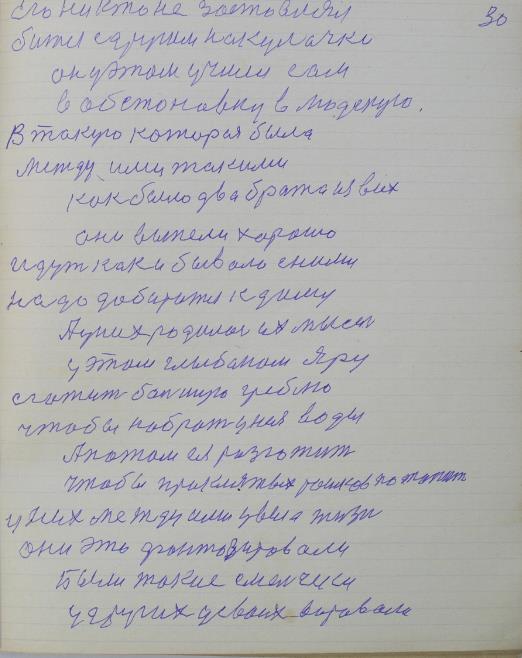 30
его никто не заставлял
битися другим накулачки
он уэтом училси сам
в обстоновку в модскую.
В такую которая была
между ими такими
как было два брата из вих
они выпели хорошо
идут как и бывало сними
надо добиратися к дому
А уних родилось их мысли
у этом глыбаком Яру
сгатит балшую греблю
чтобы набрат уния воды
А потом ея разгатит
чтобы проклятых раиков потопит
у них между ими увыла жизн
они это фронтозировали
Были такие смелчики
у других усваих воровали